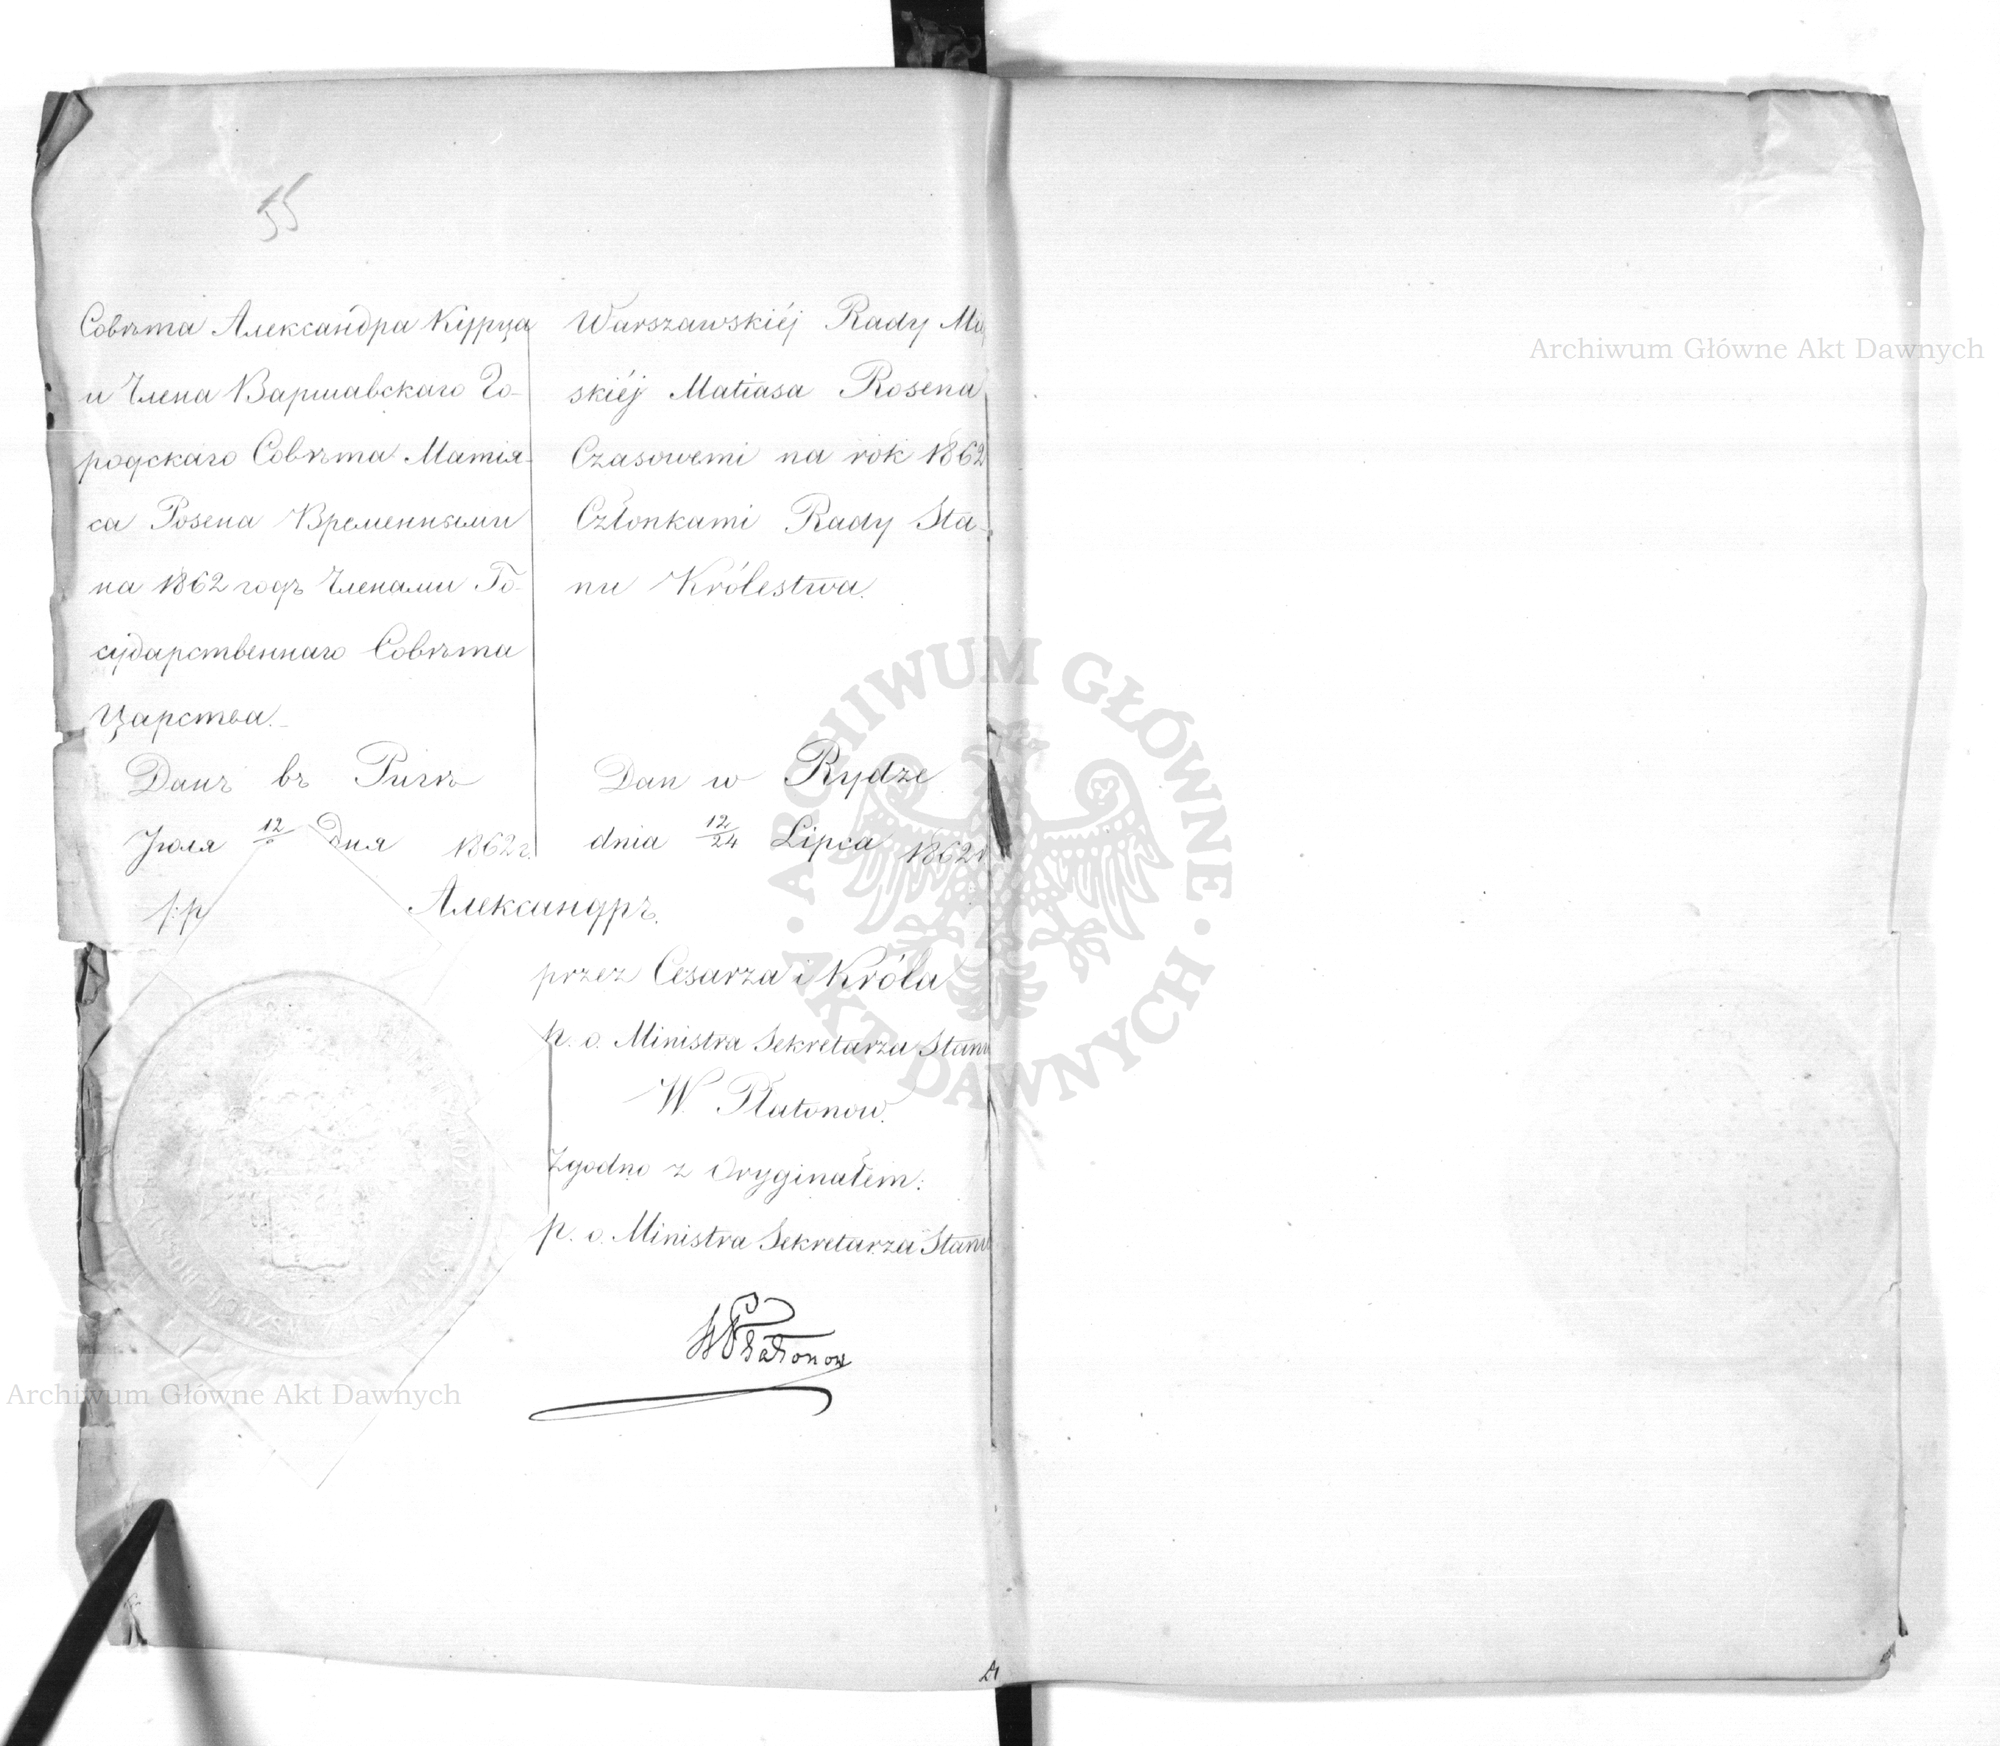 55
Совѣта Александра Курца
и Члена Варшавскаго Го-
родскаго Совѣта Матіа-
са Розена Временными
на 1862 годъ Членами Го-
сударственнаго Совѣта
Царства.
Данъ въ Ригѣ
Іюля 12 дня 1862 г.
Warszawskiéj Rady Miej
skiéj Matiasa Rosena
Czasowemi na rok 1862
Członkami Rady Sta-
nu Królestwa.
Dan w Rydze
dnia 12/24 Lipca 1862 r
Александръ.
przez Cesarza i Króla
p. o. Ministra Sekretarza Stanu
W. Płatonow.
Zgodno z Oryginałem:
p. o. Ministra Sekretarza Stanu
W Płatonow
Archiwum Główne Akt Dawnych
ARCHIWUM GŁÓWNE AKT DAWNYCH
Archiwum Główne Akt Dawnych